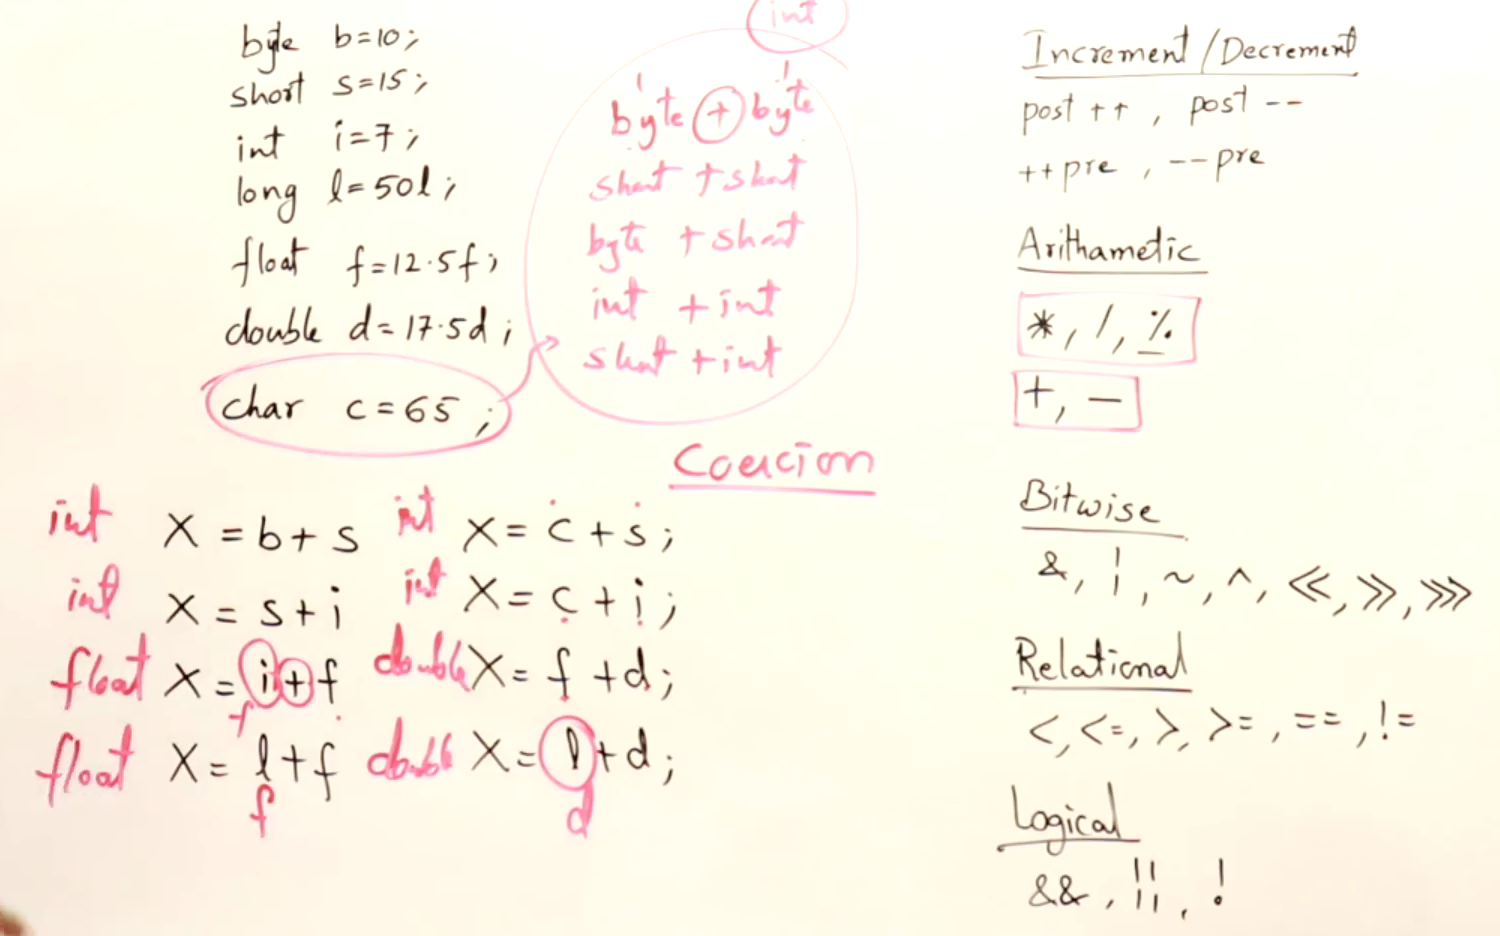 byte b=10;
short s=15;
int i=7;
long l=50l;
float f=12.5f;
double d=17.5d;
char c=65;
int
byte + byte
short + short
byte + short
int + int
short + int
Coercion
int X = b+s
int X = s+i
float X = i+f
f
float X = l+f
f
int X = c+s;
int X = c+i;
double X = f+d;
double X = l+d;
d
Increment/Decrement
post ++, post --
++pre, --pre
Arithametic
*, /, %
+, -
Bitwise
&, |, ~, ^, <<, >>, >>>
Relational
<, <=, >, >=, ==, !=
Logical
&&, ||, !